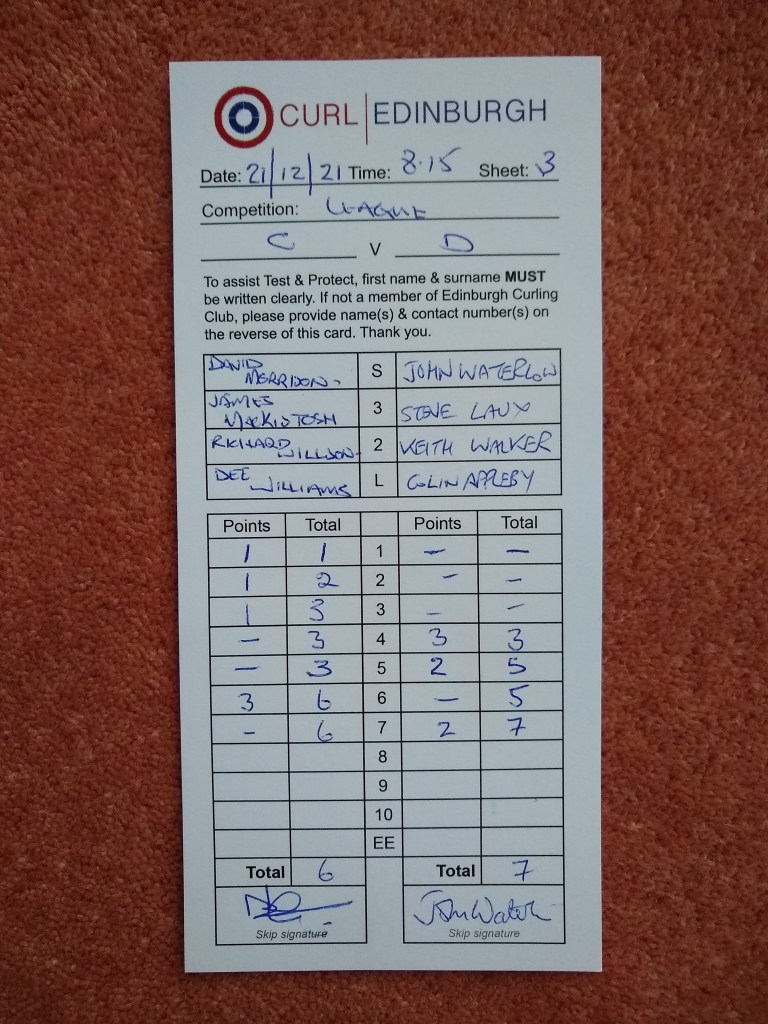 CURL | EDINBURGH
Date: 21/12/21 Time: 8.15 Sheet: 3
Competition: LEAGUE
C V D
To assist Test & Protect, first name & surname MUST
be written clearly. If not a member of Edinburgh Curling
Club, please provide name(s) & contact number(s) on
the reverse of this card. Thank you.
DAVID MORRISON S JOHN WATERLOW
JAMES MACKINTOSH 3 STEVE LAUX
RICHARD WILLSON 2 KEITH WALKER
DEE WILLIAMS L COLIN APPLEBY
Points Total Points Total
1 1 1 – –
1 2 2 – –
1 3 3 – –
– 3 4 3 3
– 3 5 2 5
3 6 6 – 5
– 6 7 2 7
8
9
10
EE
Total 6 Total 7
John Water
Skip signature Skip signature